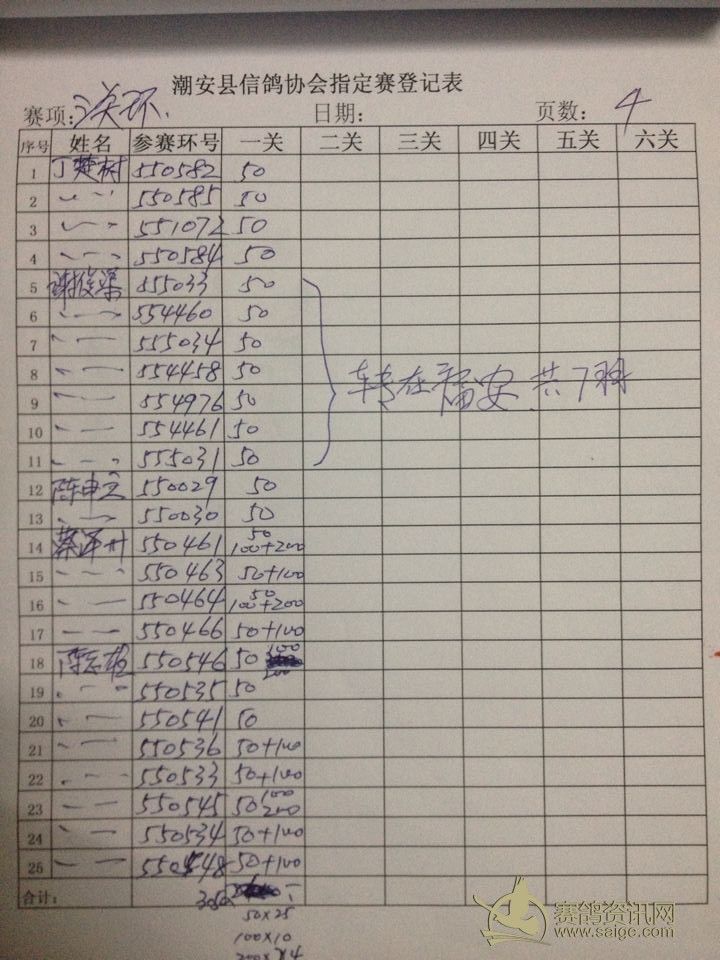 潮安县信鸽协会指定赛登记表
赛项: 三关环 日期: 页数: 4
序号 姓名 参赛环号 一关 二关 三关 四关 五关 六关
1 丁楚树 550582 50
2 〃 550585 50
3 〃 551072 50
4 〃 550584 50
5 谢俊藻 555033 50
6 〃 554460 50
7 〃 555034 50
8 〃 554458 50
9 〃 554976 50
10 〃 554461 50
11 〃 555031 50
转在福安 共7羽
12 陈 550029 50
13 〃 550030 50
14 蔡泽州 550461 50 100+200
15 〃 550463 50+100
16 〃 550464 50 100+200
17 〃 550466 50+100
18 陈 550546 50 100 200
19 〃 550535 50
20 〃 550541 50
21 〃 550536 50+100
22 〃 550533 50+100
23 〃 550545 50 100 200
24 〃 550534 50+100
25 〃 550548 50+100
合计: 3050
50×25
100×10
200×4
赛鸽资讯网
www.saige.com